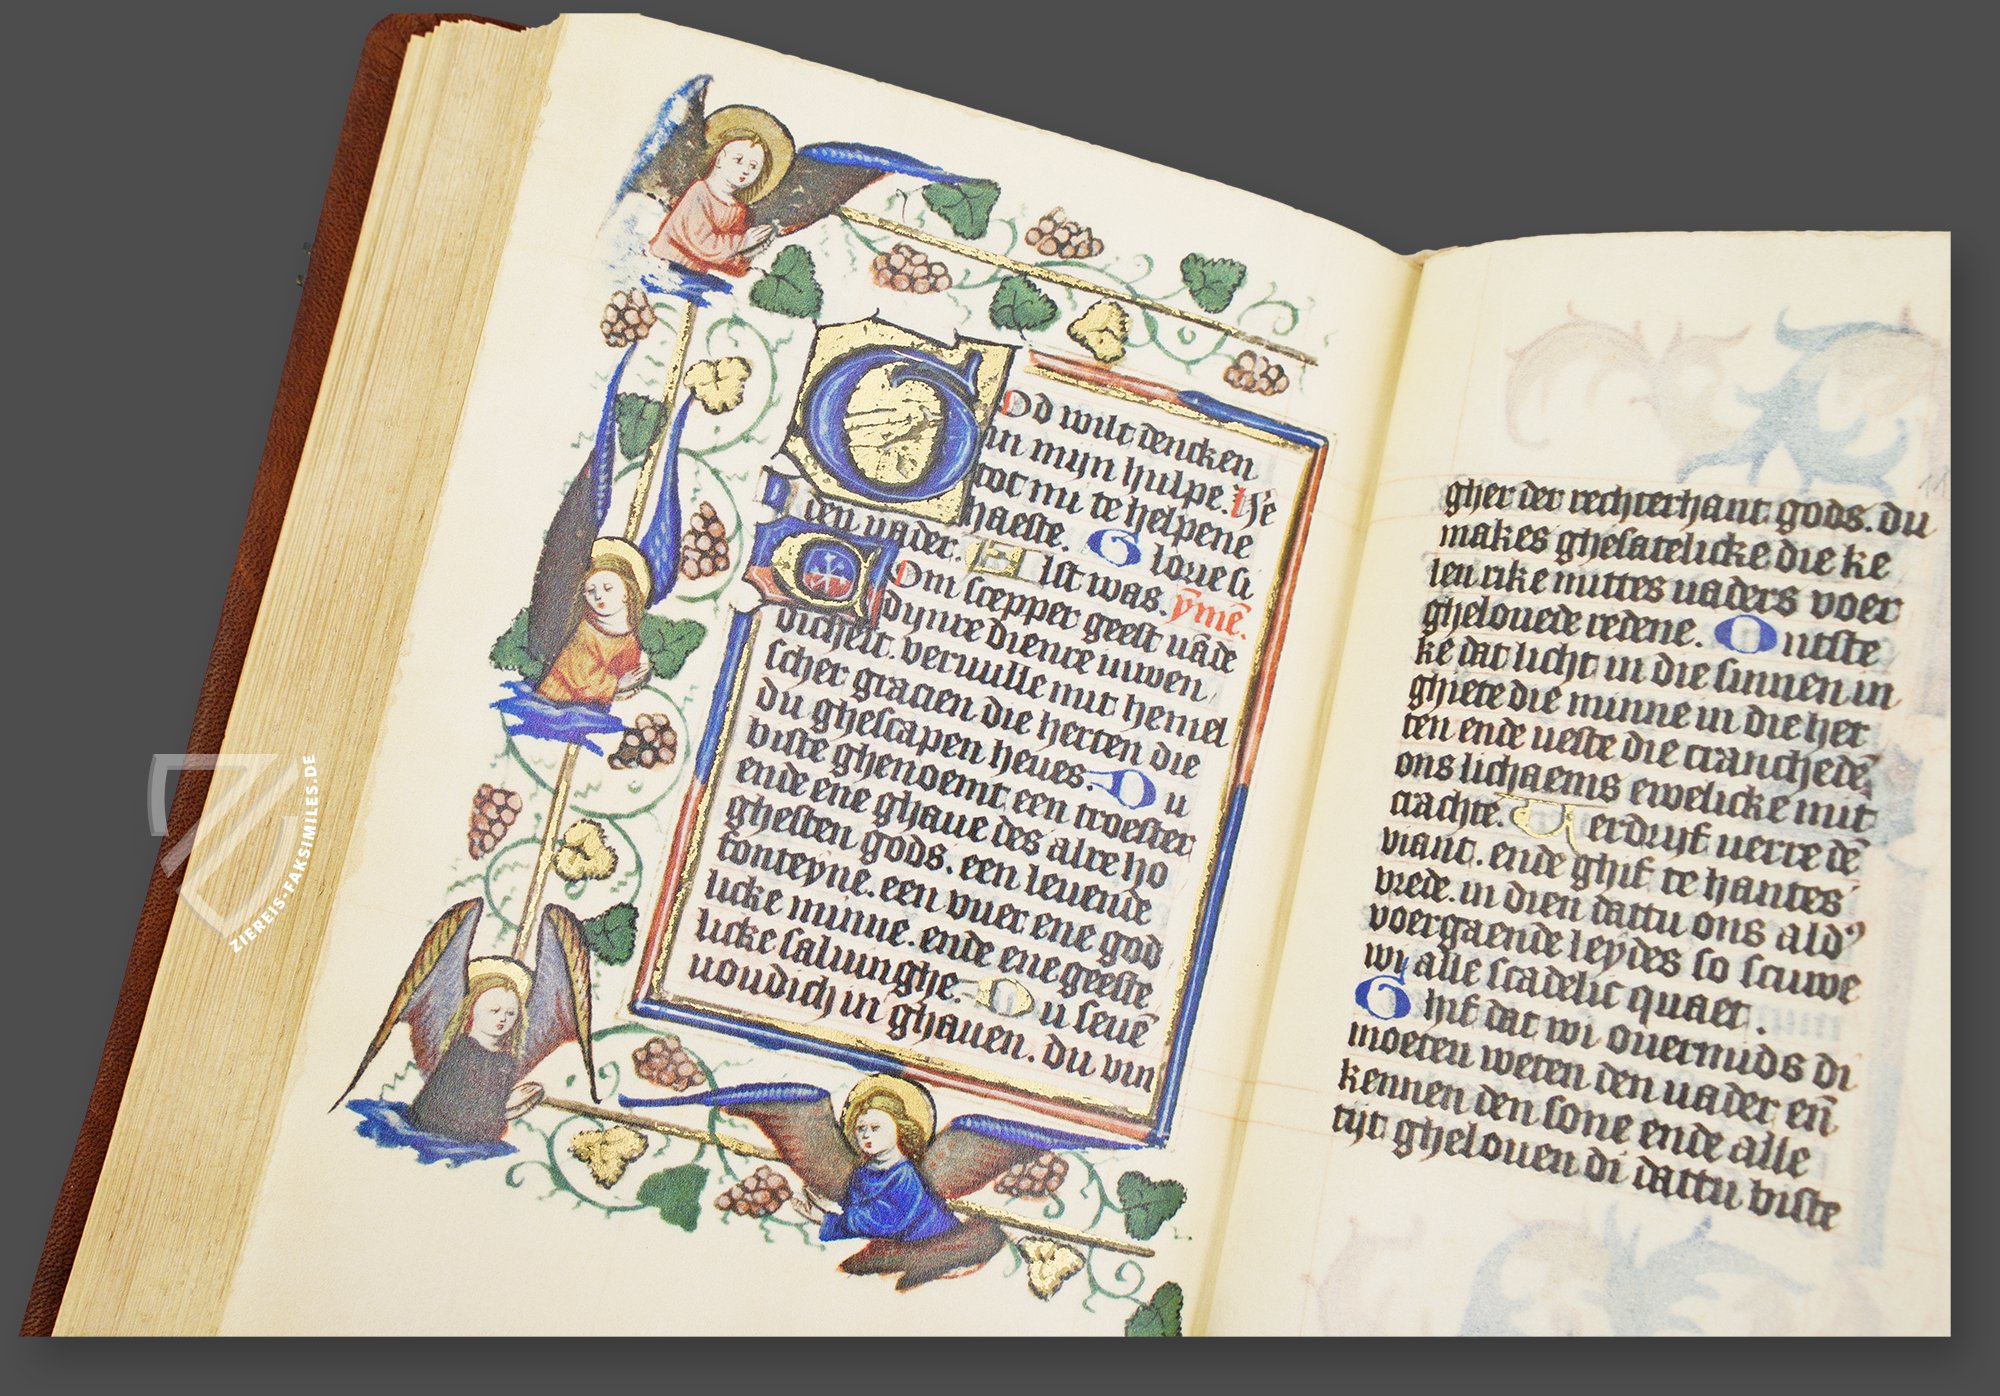 God wilt dencken
in mijn hulpe. Ihe
tot mi te helpene
haeste. Glorie si
den uader. Alst was. ymē.
Com scepper geest uāde
dijnre dienre inwen
dicheit. veruulle mit hemel
scher gracien die herten die
du ghescapen heues. Du
biste ghenoemt een troester
ende ene ghaue des alreho
ghesten gods. een leuende
fonteyne. een vuer ene god
licke minne. ende ene geeste
licke saluinghe. Du seuē
uoudich in ghauen. du vin
gher der rechterhant gods. du
makes ghesatelicke die ke
len rike mittes uaders voer
ghelouede redene. Ontste
ke dat licht in die sinnen in
ghiete die minne in die her
ten ende ueste die cranchedē
ons lichaems ewelicke mit
crachte. Verdrijf uerre dē
viant. ende ghif te hantes
vrede. in dien dattu ons ald'
voergaende leydes so scuwe
wi alle scadelic quaet.
Ghif dat wi ouermids di
moeten weten den uader eñ
kennen den sone ende alle
tijt ghelouen di dattu biste
ZIEREIS-FAKSIMILES.DE